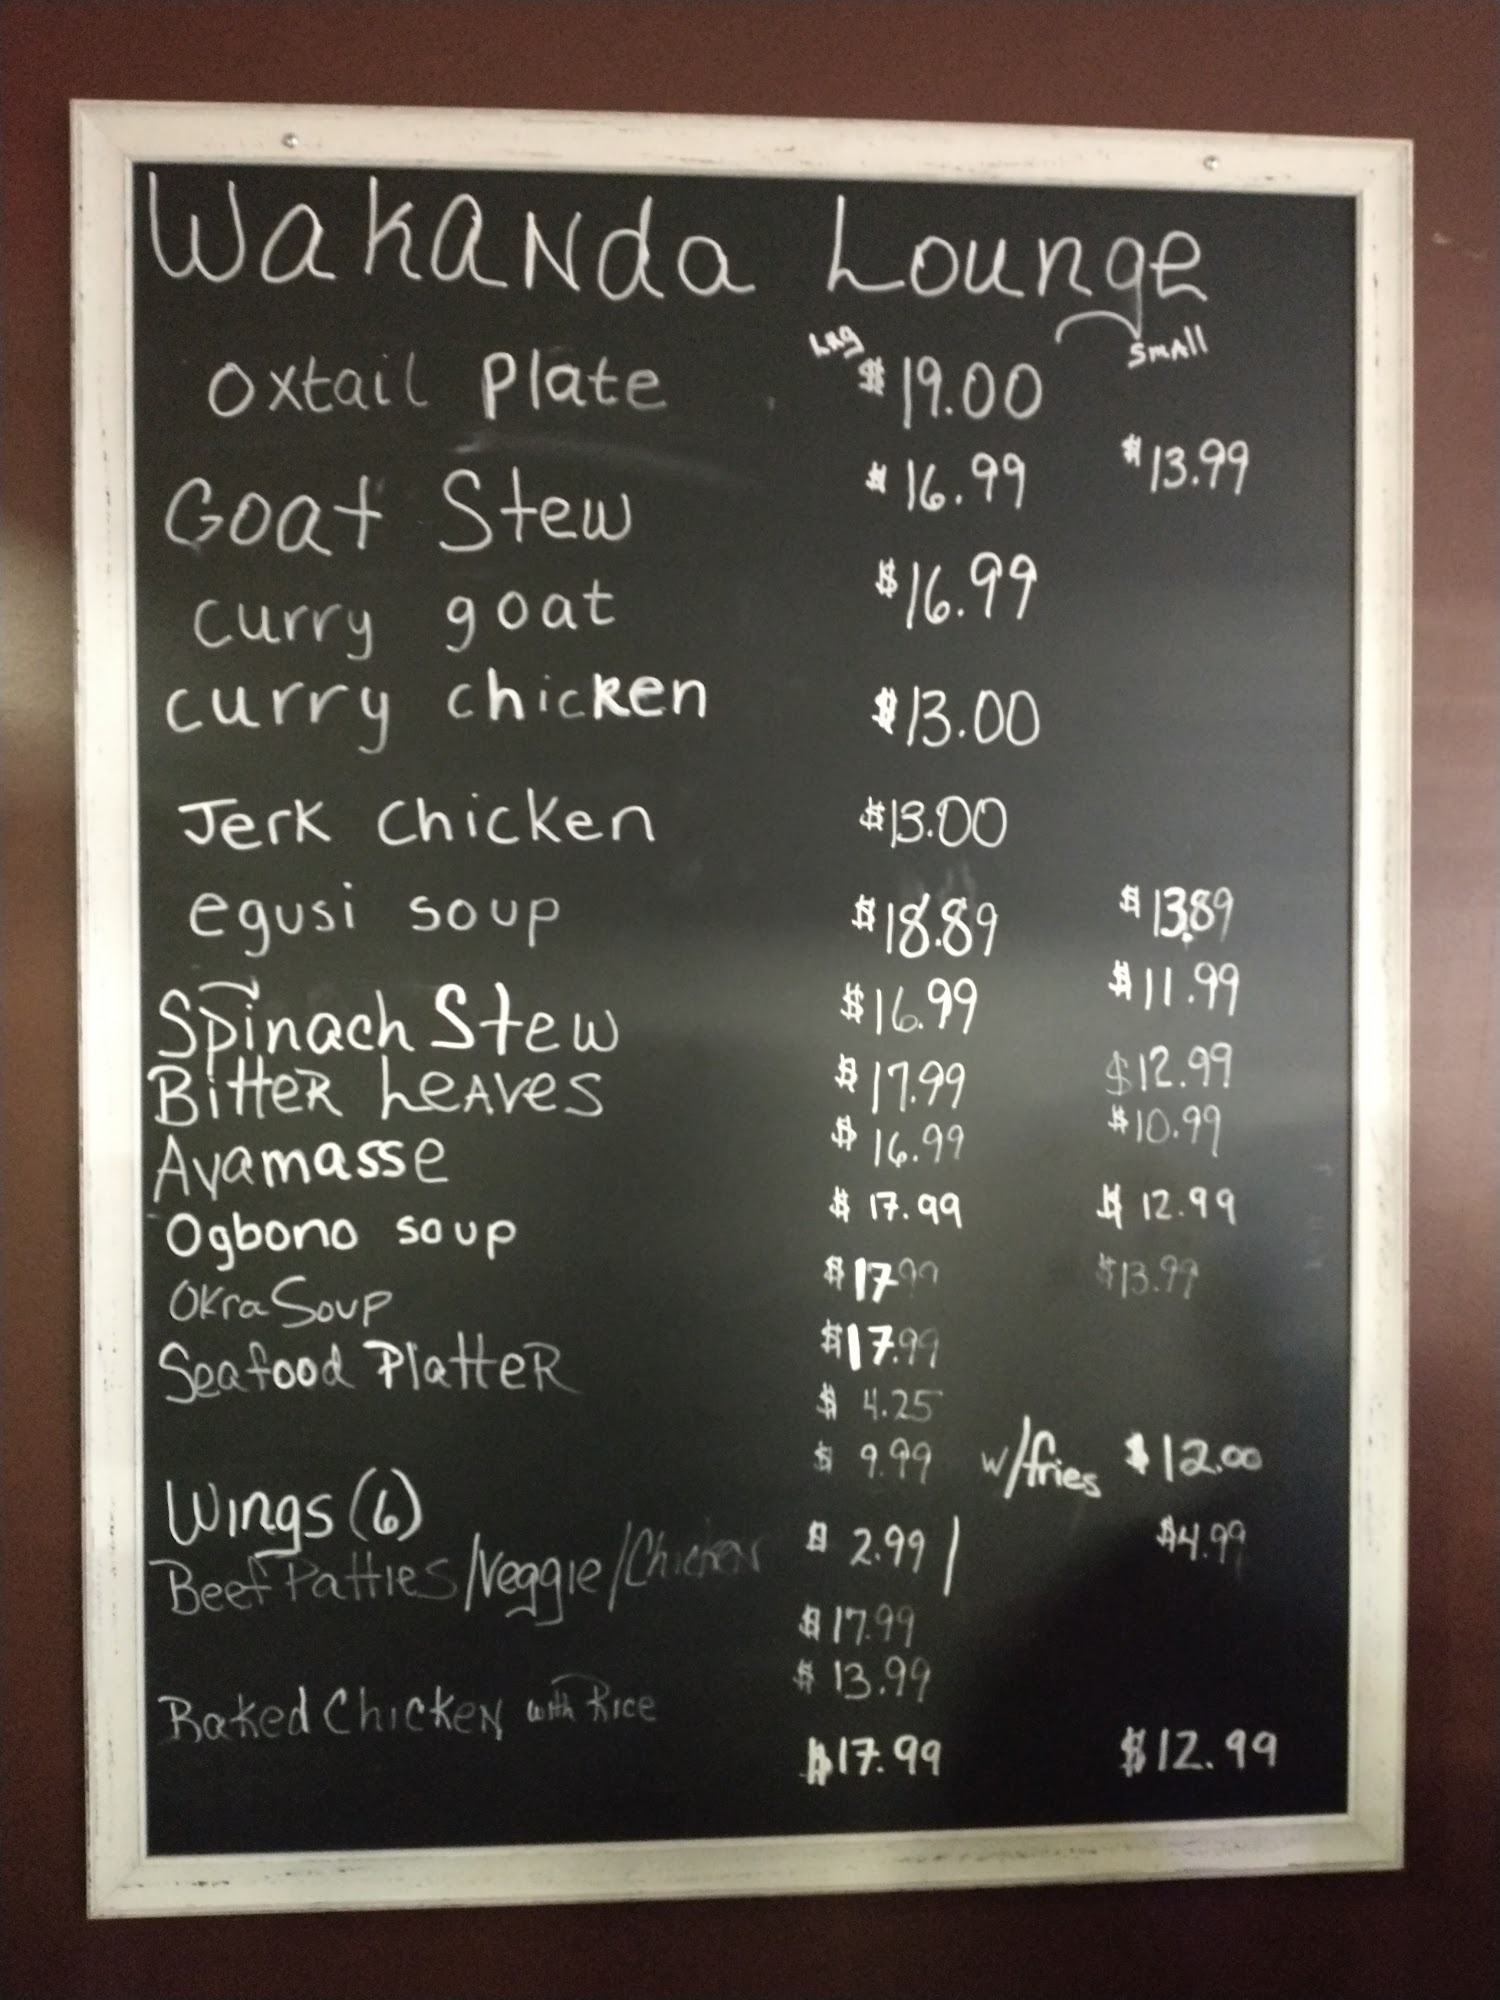 Wakanda Lounge
Lrg small
Oxtail Plate $19.00
Goat Stew $16.99 $13.99
curry goat $16.99
curry chicken $13.00
Jerk chicken $13.00
egusi soup $18.89 $13.89
Spinach Stew $16.99 $11.99
Bitter Leaves $17.99 $12.99
Ayamasse $16.99 $10.99
Ogbono soup $17.99 $12.99
Okra Soup $17.99 $13.99
Seafood Platter $17.99
$4.25
$9.99 w/fries $12.00
Wings (6)
Beef Patties/Veggie/Chicken $2.99 / $4.99
$17.99
$13.99
Baked Chicken with Rice
$17.99 $12.99